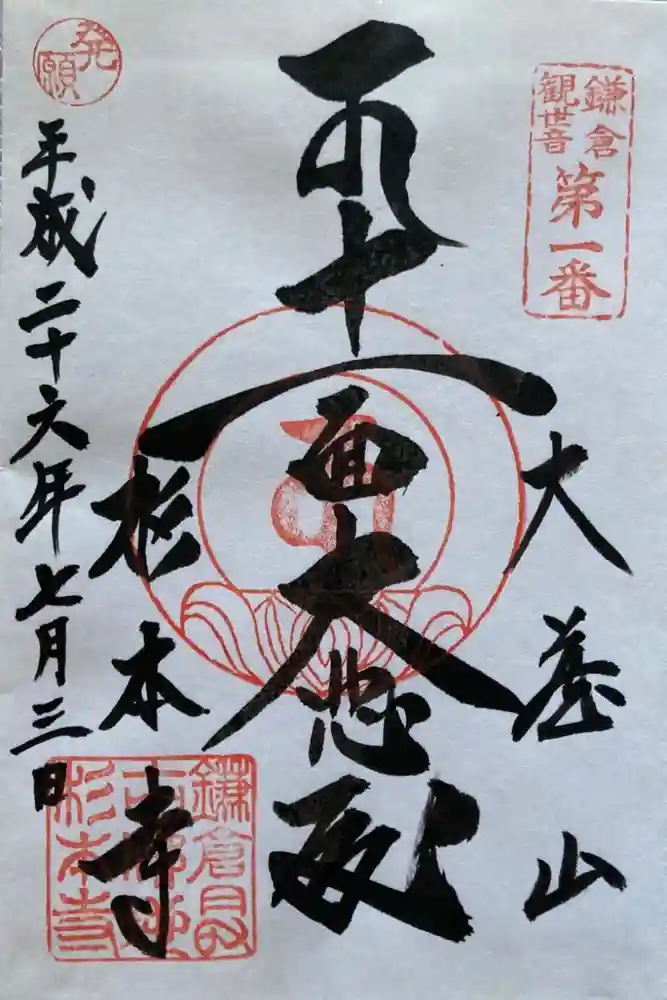 鎌倉
観世音
第一番
大蔵山
十一面大悲殿
杉本寺
発願
平成二十六年七月三日
鎌倉最
杉本寺